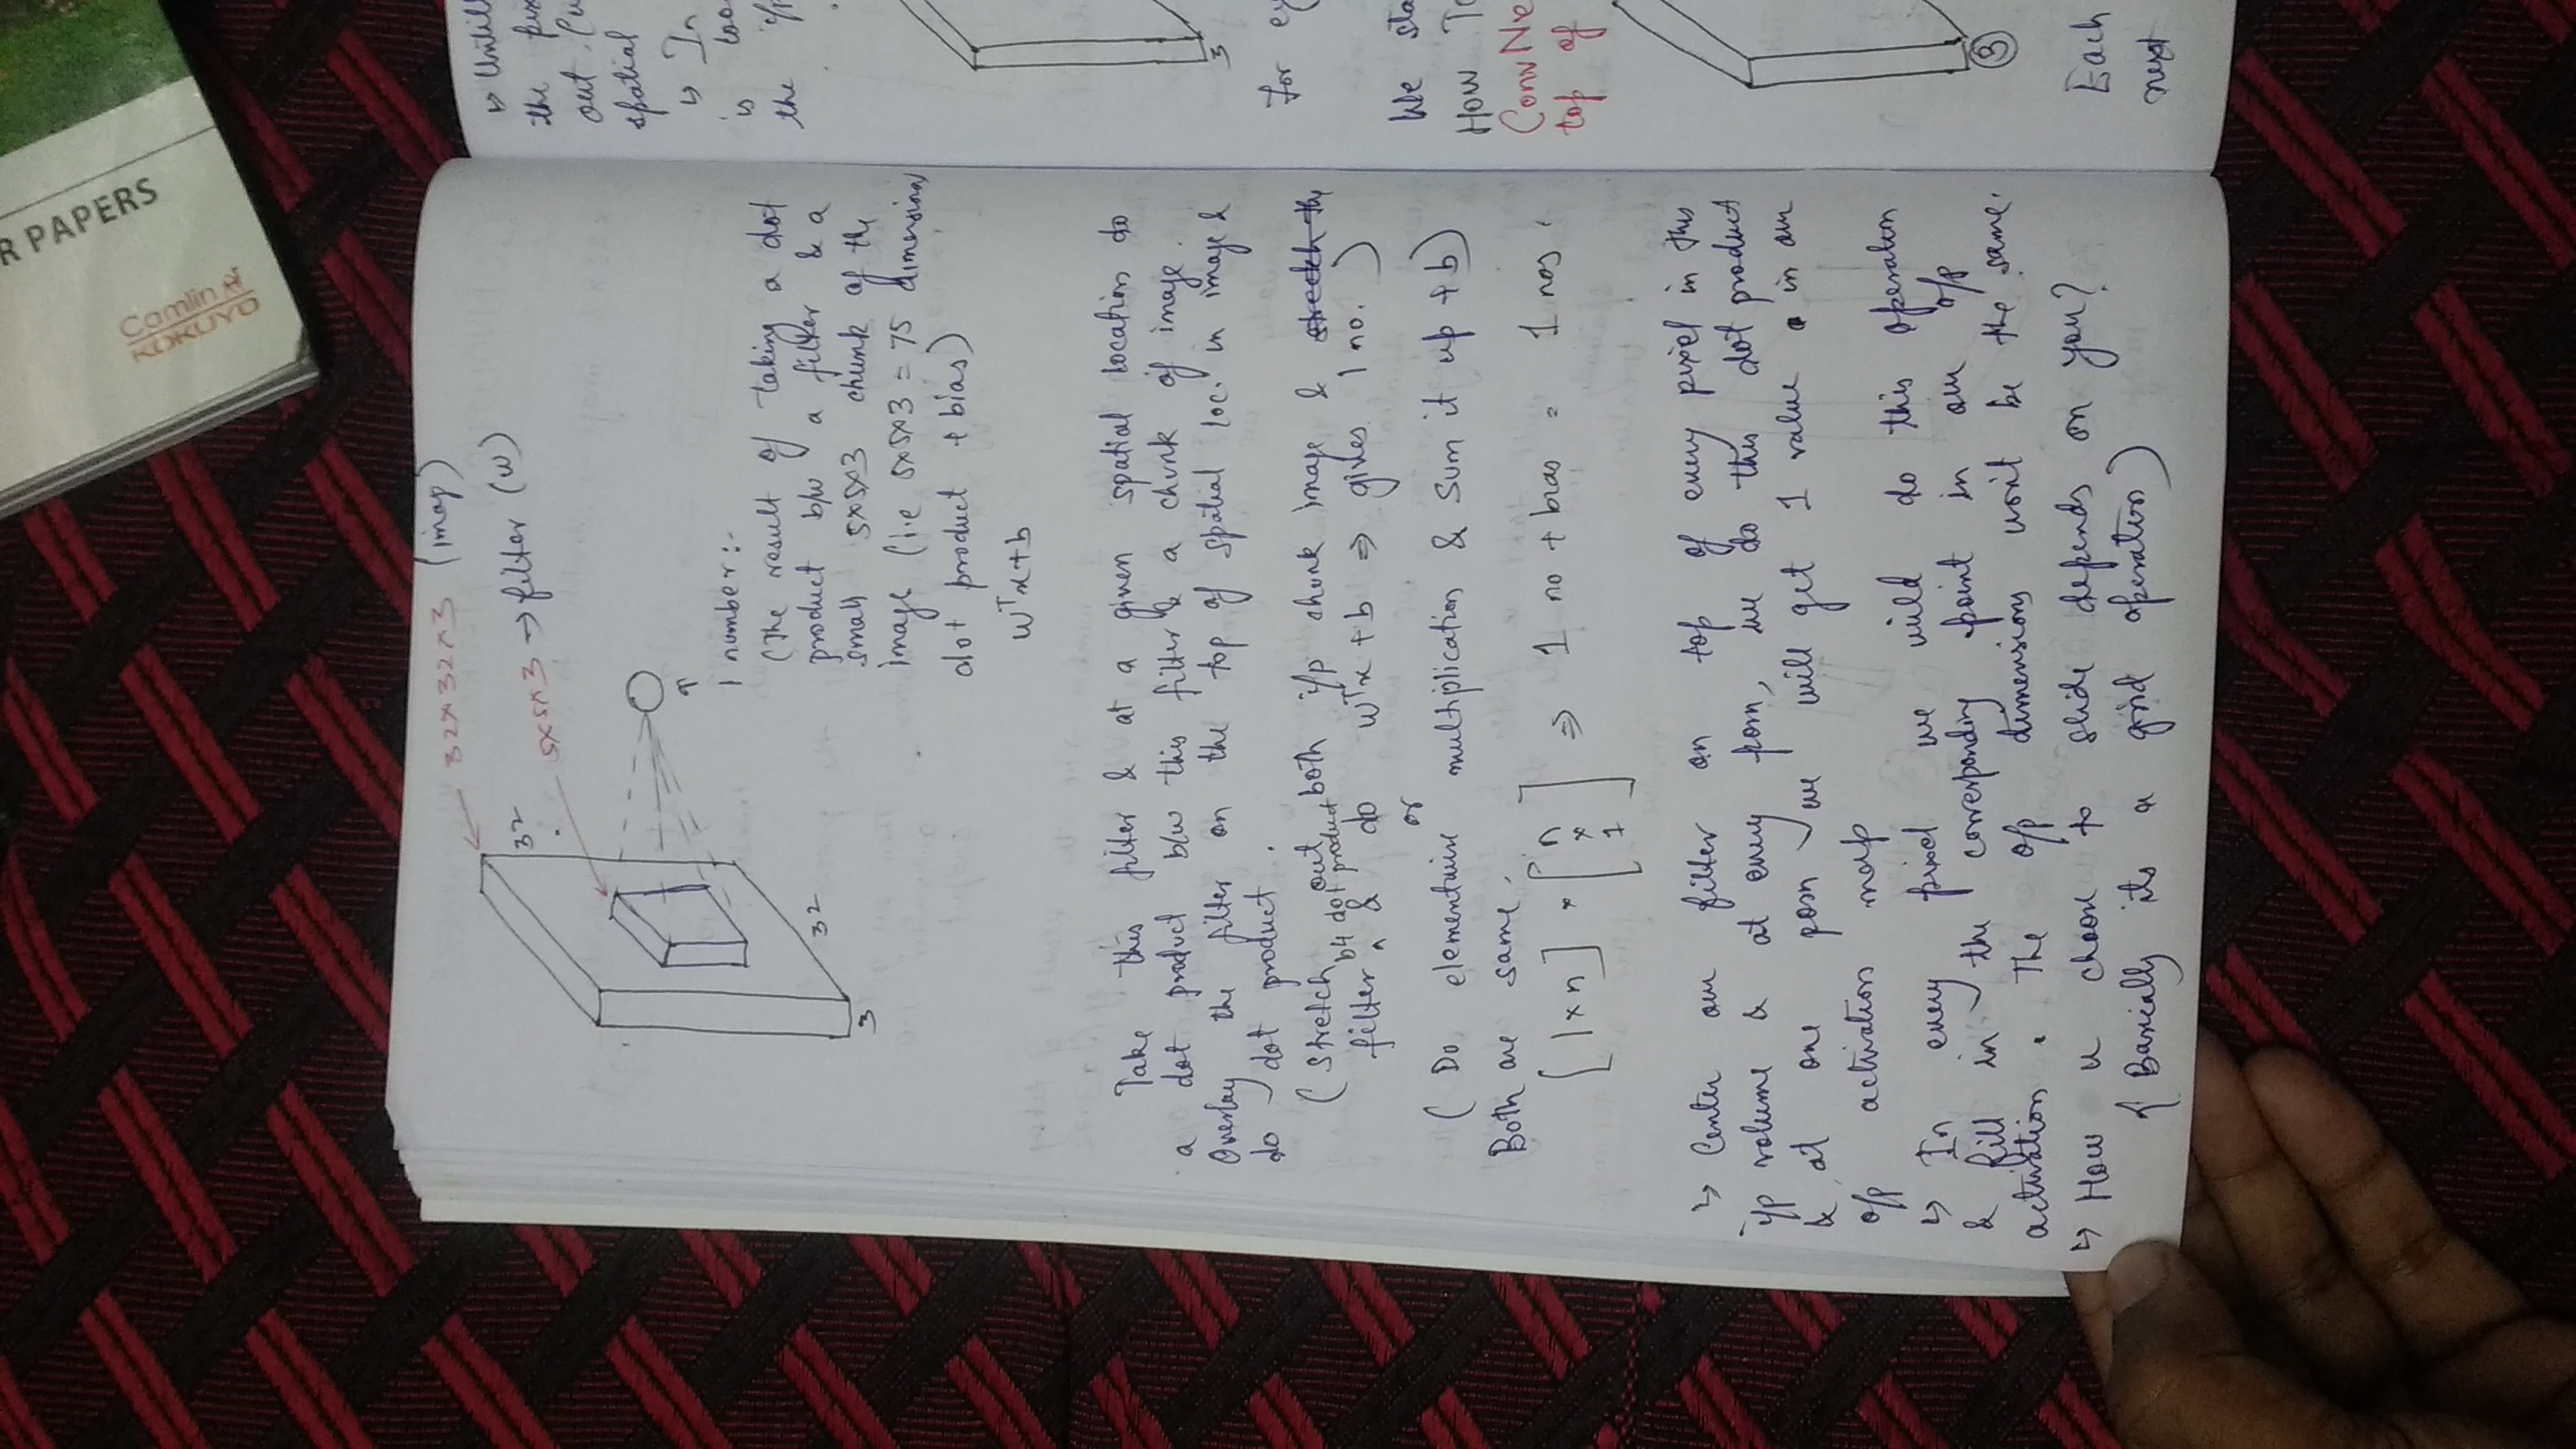 32x32x3 (imag)
5x5x3 → filter (w)
32
32
3
1 number:-
(The result of taking a dot
product b/w a filter & a
small 5x5x3 chunk of the
image (i.e 5x5x3 = 75 dimension
dot product + bias)
wᵀx+b
Take this filter & at a given spatial location do
a dot product b/w this filter & a chunk of image.
Overlay the filter on the top of spatial loc. in image &
do dot product.
(Stretch out both i/p chunk image & stretch the
filter ^ b4 dot product & do wᵀx + b ⇒ gives 1 no.)
or
(Do elementwise multiplication & sum it up + b)
Both are same.
[1 x n] * [n x 1] ⇒ 1 no + bias = 1 nos.
↳ Center our filter on top of every pixel in this
i/p volume & at every posn, we do this dot product
& at one posn we will get 1 value in our
o/p activation map
↳ In every pixel we would do this operation
& fill in the corresponding point in our o/p
activation. The o/p dimensions won't be the same.
↳ How u choose to slide depends on you?
{ Basically its a grid operation)
↳ Untill
the
out
spatial
↳ In
is
the i/p
3
For
We sta
How To
ConvNe
top of
3
Each
next
R PAPERS
Camlin
KOKUYO